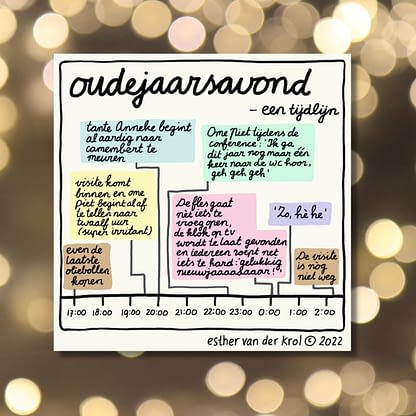 oudejaarsavond
- een tijdlijn
tante Anneke begint
al aardig naar
camembert te
meuren
Ome Piet tijdens de
conference: 'Ik ga
dit jaar nog maar één
keer naar de wc hoor,
geh geh geh'
visite komt
binnen en ome
Piet begint al af
te tellen naar
twaalf uur
(super irritant)
De fles gaat
nèt iets te
vroeg open,
de klok op tv
wordt te laat gevonden
en iedereen roept net
iets te hard: 'gelukkig
nieuwjaaaabaaar!'
'Zo, hè hè'
even de
laatste
oliebollen
kopen
De visite
is nóg
niet weg
17:00 18:00 19:00 20:00 21:00 22:00 23:00 0:00 1:00 2:00
esther van der krol © 2022